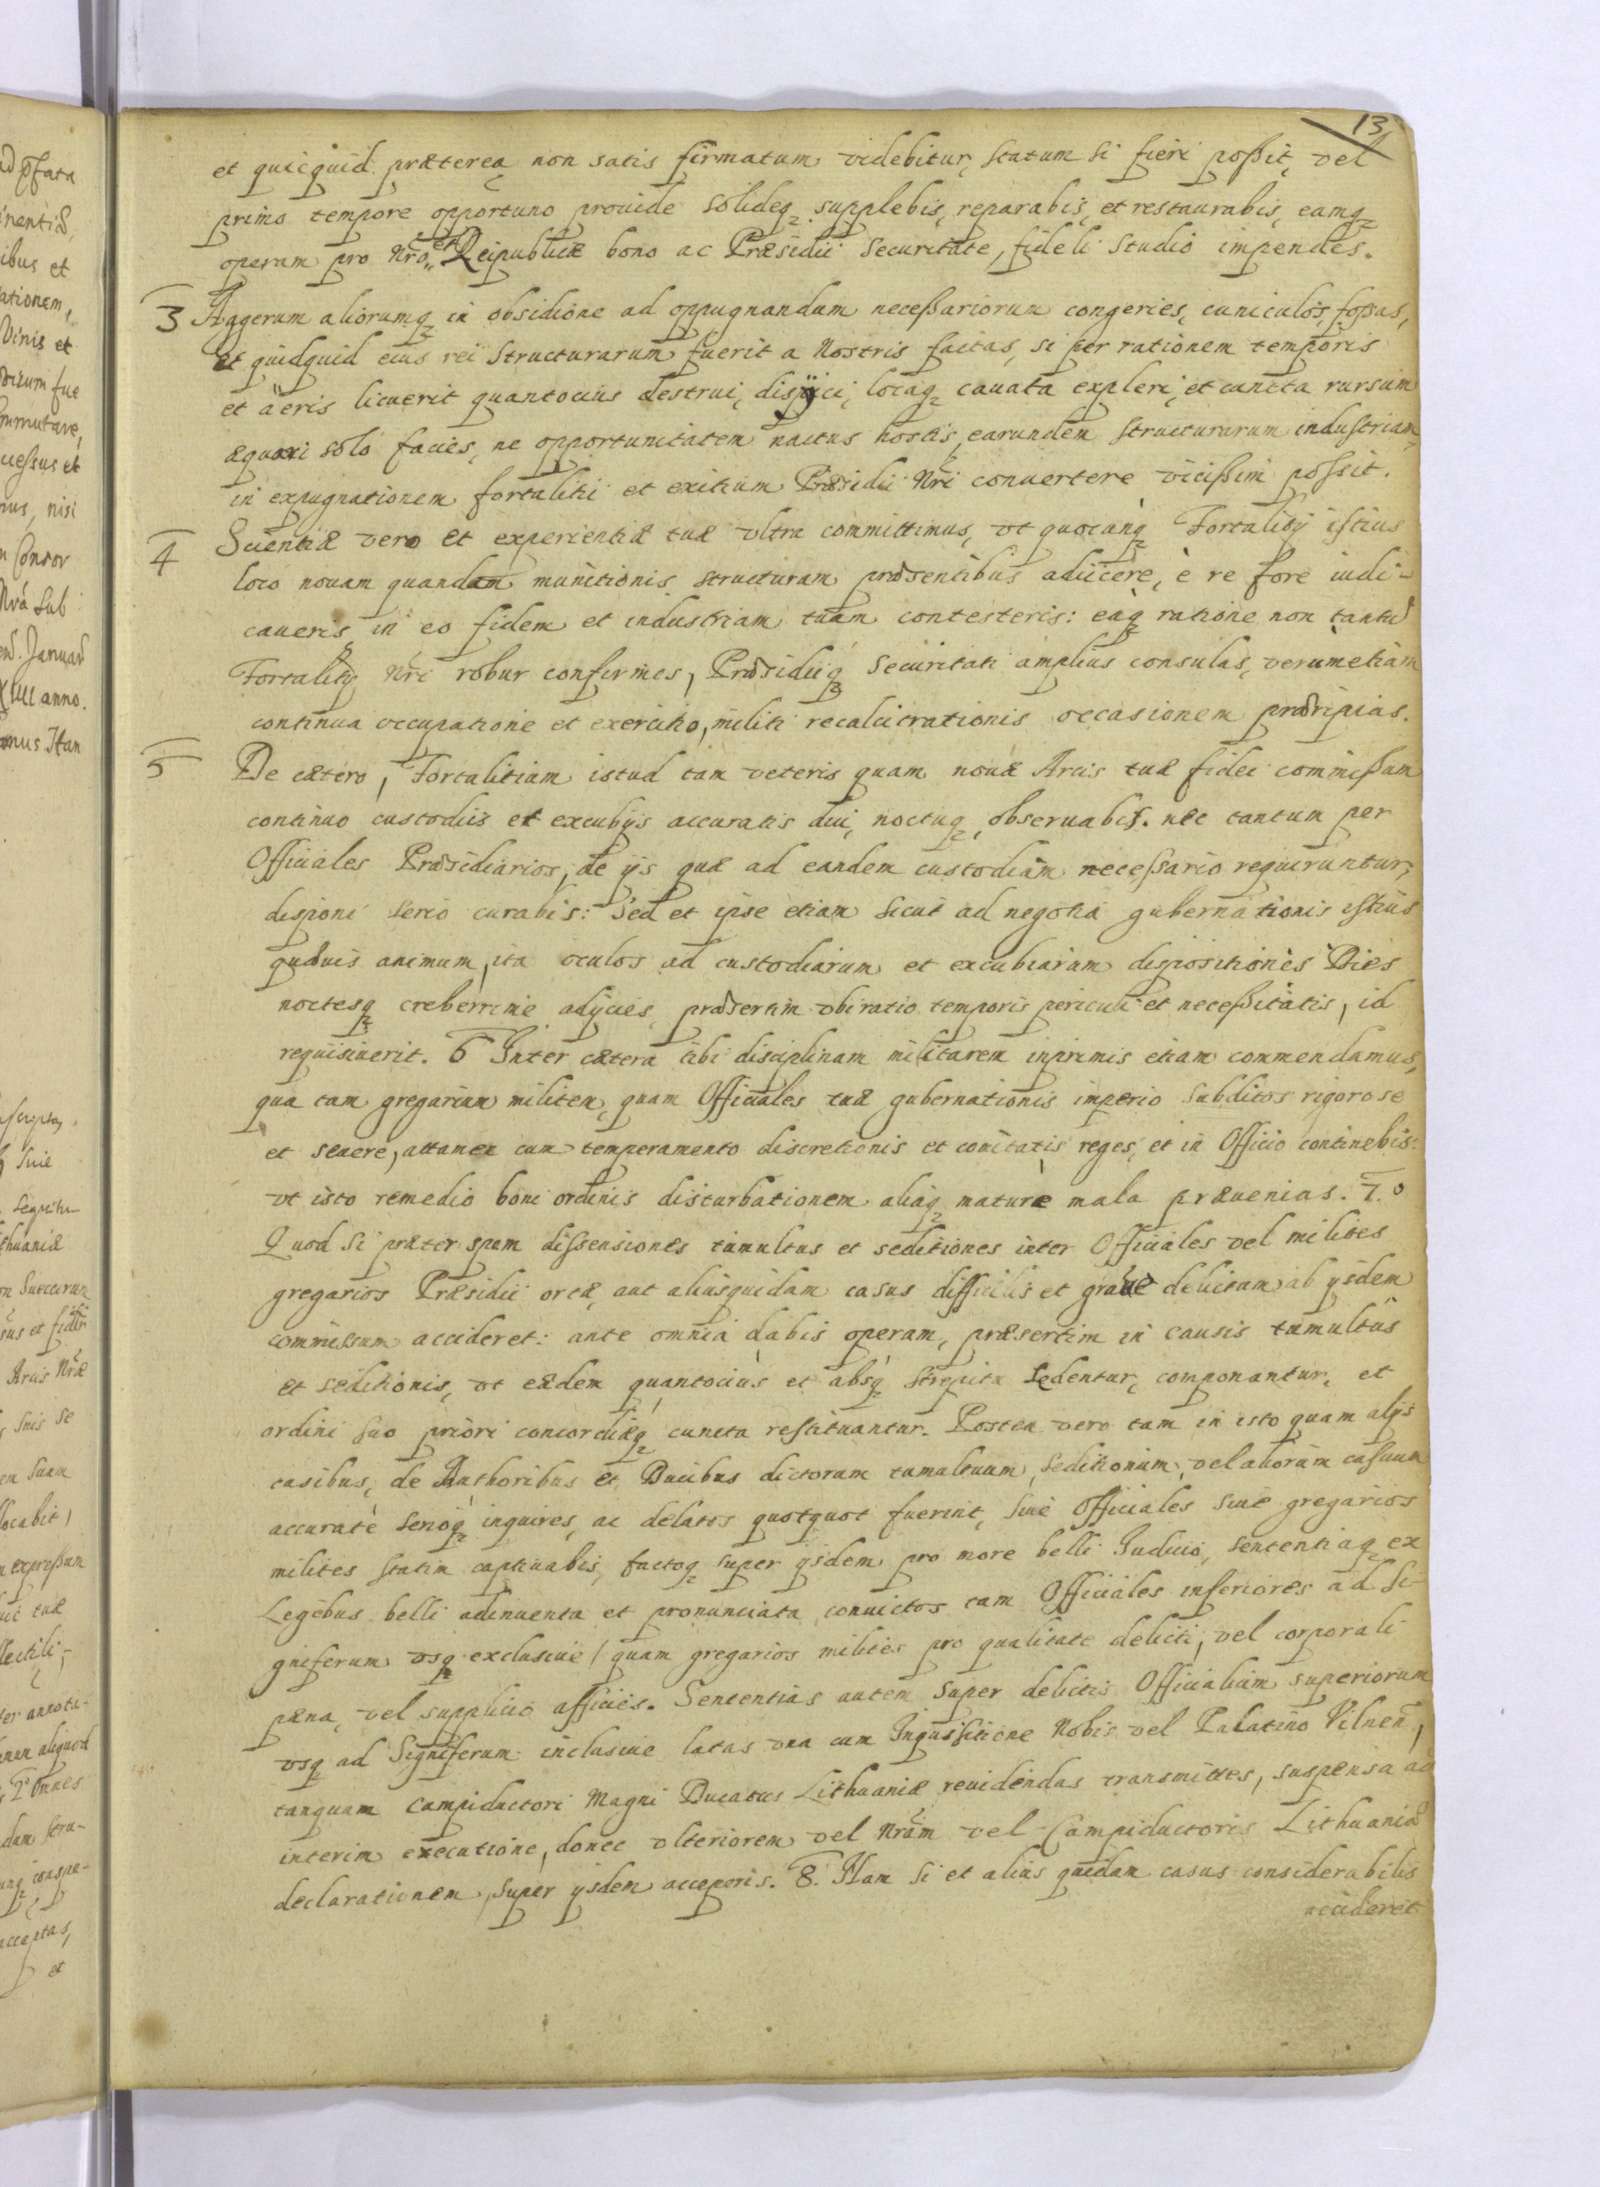 13
et quicquid præterea non satis firmatum videbitur, statum si fieri poßit, vel
primo tempore opportuno prouide solideq; supplebis, reparabis, et restaurabis, eamq;
operam pro Nrõ et Reipublicæ bono ac Præsidii securitate, fideli studio impendes.
3 Aggerum aliorumq; in obsidione ad oppugnandum neceßariorum congeries, cuniculos, foßas,
et quidquid eius rei structurarum fuerit a Nostris factas, si per rationem temporis
et aëris licuerit quantocius destrui, disijci, locaq; cauata expleri, et cuncta rursum
æquari solo facies, ne opportunitatem nactus hostis, earundem structurarum industriam
in expugnationem fortalitii et exitium Præsidii Nri conuertere vicißim poßit.
4 Scientiæ vero et experientiæ tuæ vltra committimus, vt quocunq; Fortalitij istius
loco nouam quandam munitionis structuram præsentibus adiicere, è re fore iudi-
caueris, in eo fidem et industriam tuam contesteris: eaq; ratione non tantũ
Fortalitij Nri robur confirmes, Præsidiiq; securitati amplius consulas, verumetiam
continua occupatione et exercitio, militi recalcitrationis occasionem præripias.
5 De cætero, Fortalitium istud tam veteris quam nouæ Arcis tuæ fidei commißum
continuo custodiis et excubijs accuratis diu, noctuq; obseruabis. nec tantum per
Officiales Præsidiarios, de ijs quæ ad eandem custodiam neceßario requiruntur,
disponi serio curabis: Sed et ipse etiam sicut ad negotia gubernationis istius
quæuis animum, ita oculos ad custodiarum et excubiarum dispositiones Dies
noctesq; creberrime adijcies, præsertim vbi ratio temporis periculi et neceßitatis, id
requisiuerit. 6 Inter cætera tibi disciplinam militarem inprimis etiam commendamus,
qua tam gregarium militem, quam Officiales tuæ gubernationis imperio subditos rigorose
et seuere, attamen cum temperamento discretionis et comitatis reges, et in Officio continebis:
vt isto remedio boni ordinis disturbationem aliaq; mature mala præuenias. 7.º
Quod si præter spem dissensiones tumultus et seditiones inter Officiales vel milites
gregarios Præsidii ortæ, aut aliusquidam casus difficilis et graue delictum ab ijsdem
commissum accideret: ante omnia dabis operam, præsertim in causis tumultus
et seditionis, vt eædem quantocius et absq; strepitu sedentur, componantur, et
ordini suo priori concordiæq; cuncta restituantur. Postea vero tam in isto quam alijs
casibus, de Authoribus et Ducibus dictorum tumultuum, seditionum, vel aliorum casuum
accurate serioq; inquires, ac delatos quotquot fuerint, siue Officiales siue gregarios
milites statim captiuabis, factoq; super ijsdem pro more belli Iudicio, sententiaq; ex
Legibus belli adinuenta et pronunciata, conuictos tam Officiales inferiores ad Si-
gniferum vsq; exclusiue / quam gregarios milites pro qualitate delicti, vel corporali
pæna, vel supplicio afficies. Sententias autem super delictis Officialium superiorum
vsq; ad Signiferum inclusiue latas vna cum Inquisitione Nobis vel Palatino Vilnen,
tanquam Campiductori Magni Ducatus Lithuaniæ reuidendas transmittes, suspensa ad
interim executione, donec vlteriorem vel Nrãm vel Campiductoris Lithuaniæ
declarationem, super ijsdem acceperis. 8. Nam si et alius quidam casus considerabilis
accideret